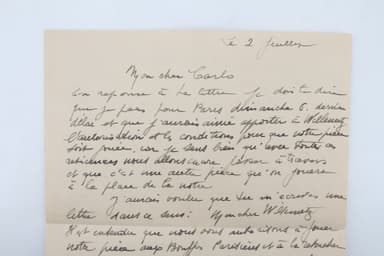 Le 2 Juillet
Mon cher Carlo
En reponse à ta lettre je dois te dire
que je pars pour Paris dimanche 6. dernier
délai et que j'aurais aimé apporter à Willemetz
l'autorisation et les conditions pour que notre pièce
soit jouée, car je sens bien qu'avec toutes ces
reticences nous allons encore passer à travers
et que c'est une autre pièce qu'on jouera
à la place de la notre
J'aurais voulu que tu m'écrives une
lettre dans ce sens: Mon cher Willemetz
Il est entendu que nous vous autorisons à jouer
notre pièce aux Bouffes Parisiens et à la